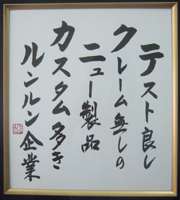 テスト良し
クレーム無しの
ニュー製品
カスタム多き
ルンルン企業